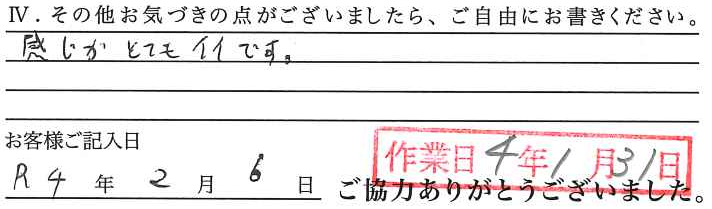 Ⅳ．その他お気づきの点がございましたら、ご自由にお書きください。
感じがとてもイイです。
お客様ご記入日
作業日 4年1月31日
R4年2月6日
ご協力ありがとうございました。